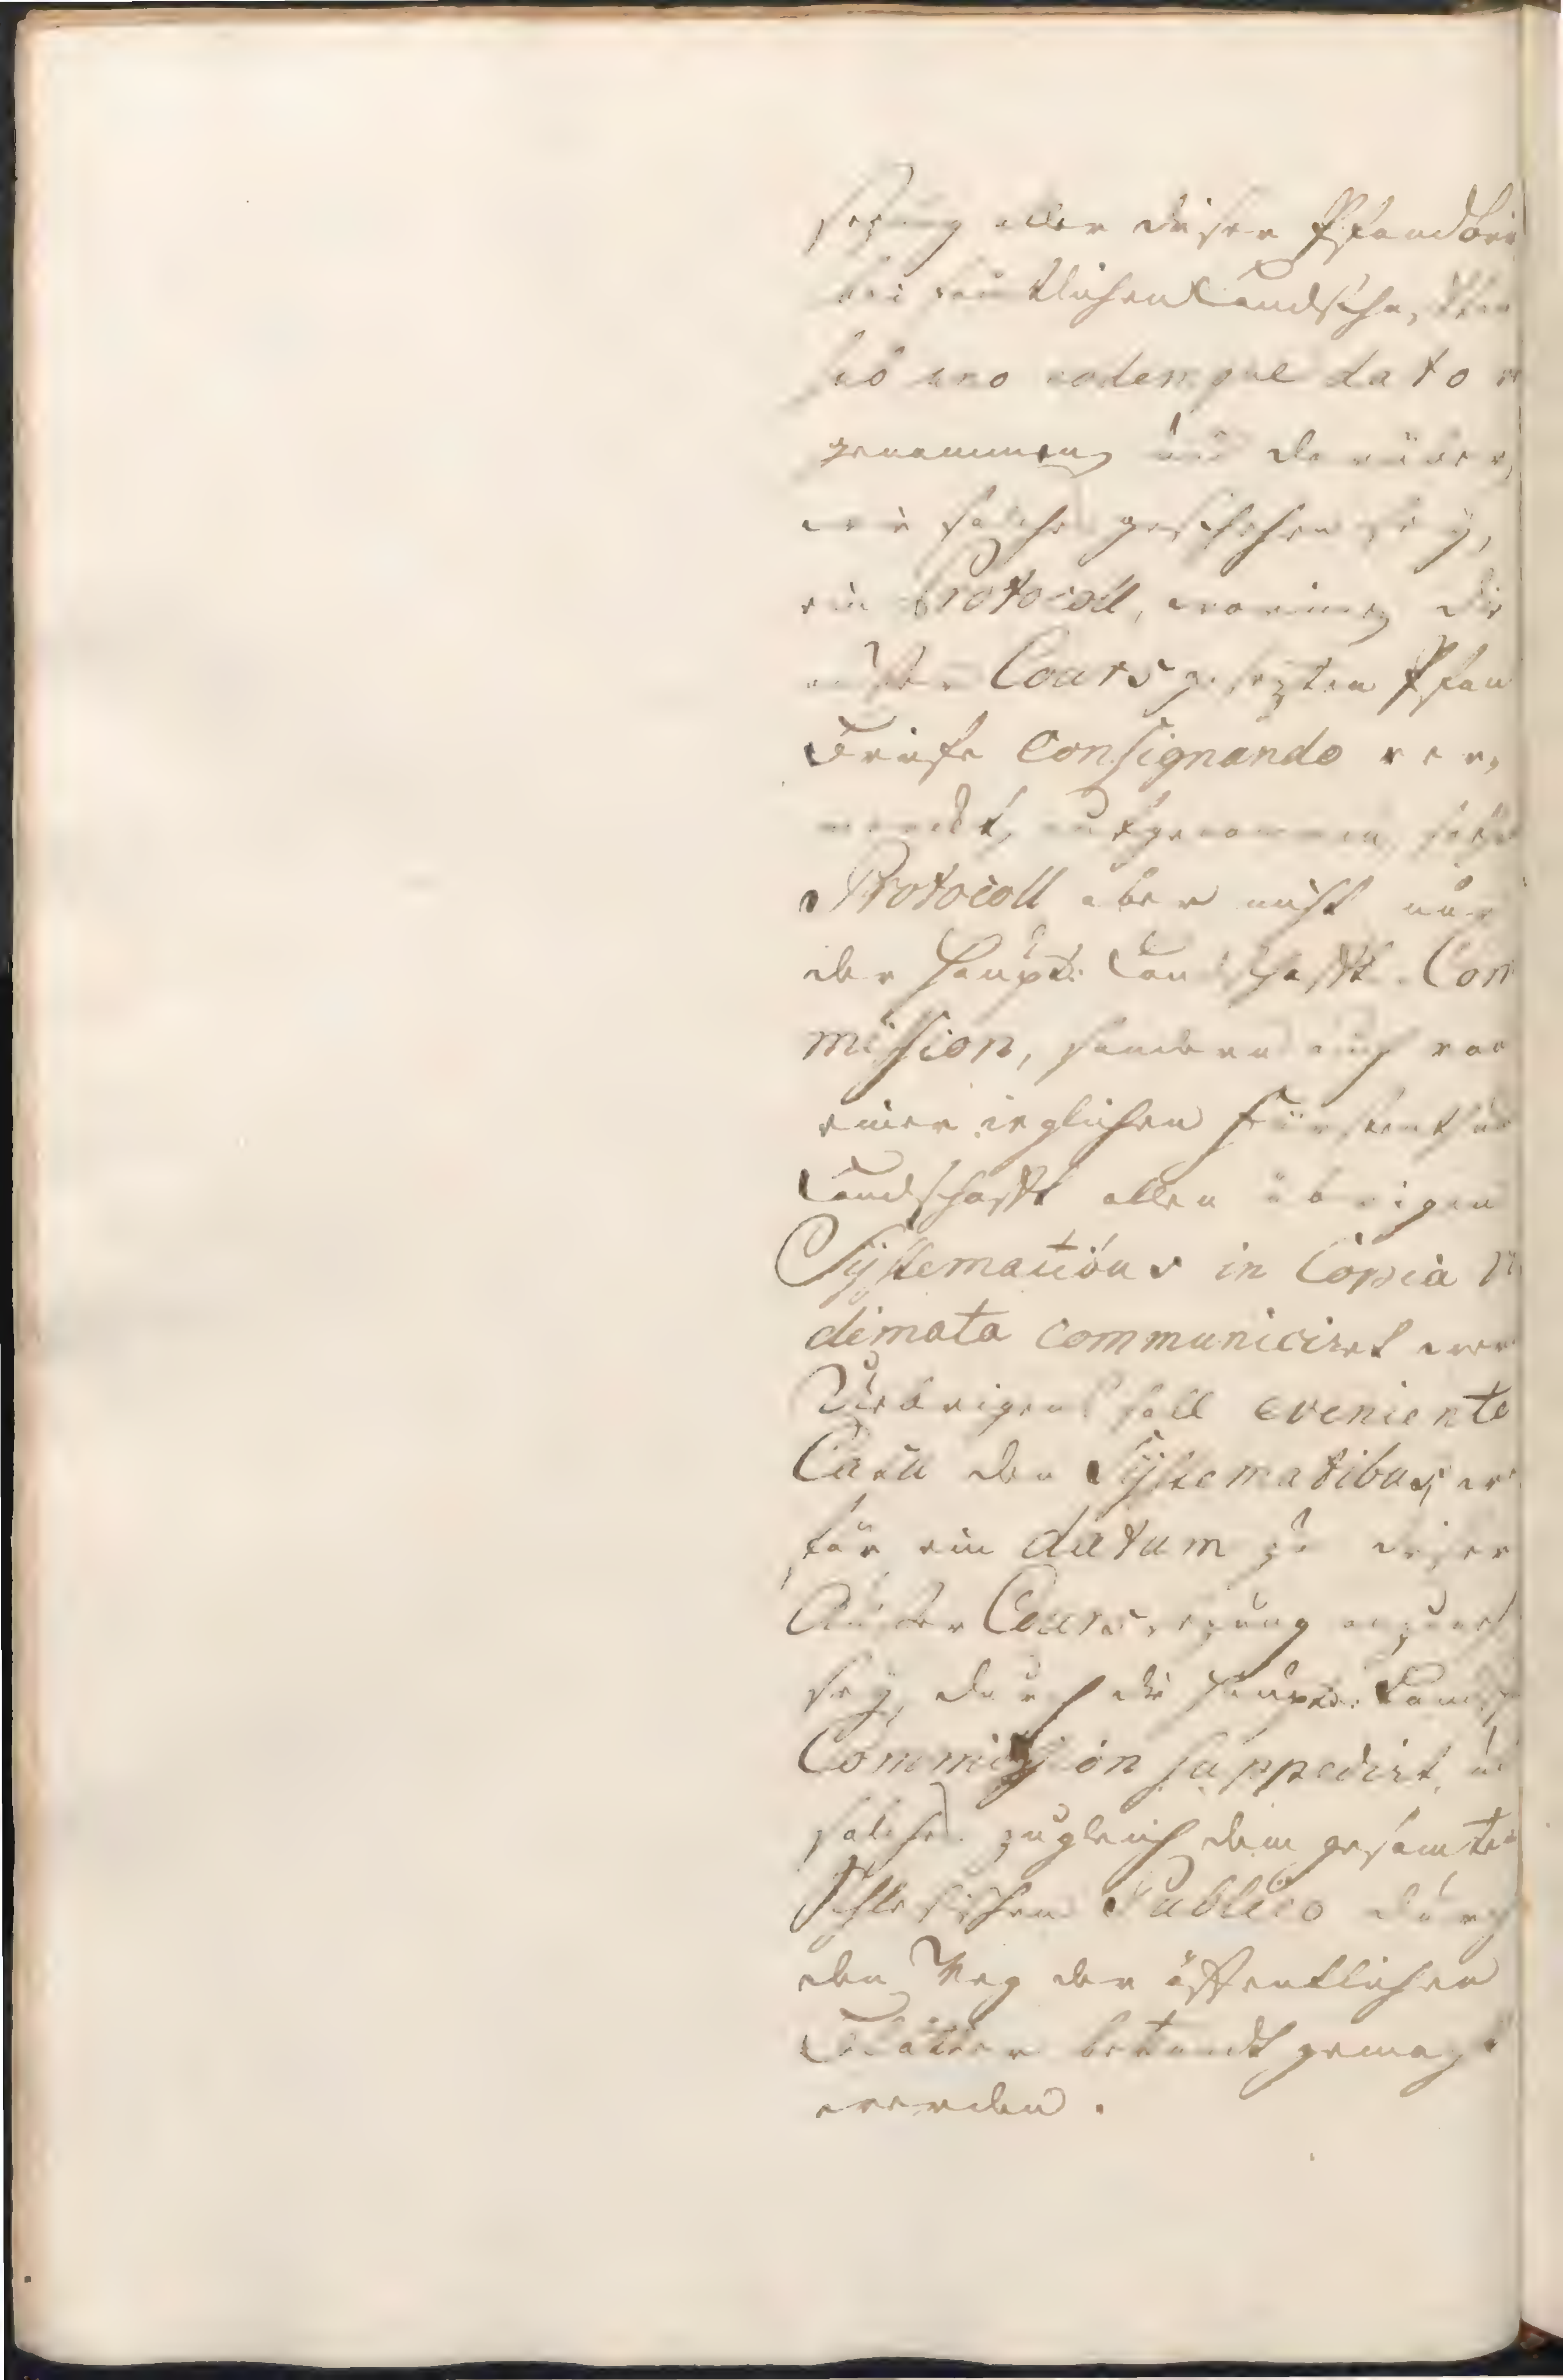 setzung aller dieser Pfandbri
bei sämtlichen Landschafften
sub uno eodemque dato
genommen und darüber,
wie solches geschehen sey,
ein Protocoll, worinnen die
außer Cours gesezten Pfan
Briefe Consignando ver,
merckt, aufgenommen, sothan
Protocoll aber nicht nur
der Haupt. Landschafft. Com
mission, sondern auch von
einer ieglichen Fürstenthum
Landschafft allen übrigen
Systematibus in Copia vi
dimata communiciret wer
Uiebrigens soll eveniente
Casu den Systematibus, w
für ein datum zu dieser
Außer Courssezung
sey, durch die Haupt. Landsch
Commission suppedirt, un
solches zugleich dem gesamten
Schlesischen Publico durch
den Weg der öffentlichen
Blätter bekandt gemacht
werden.